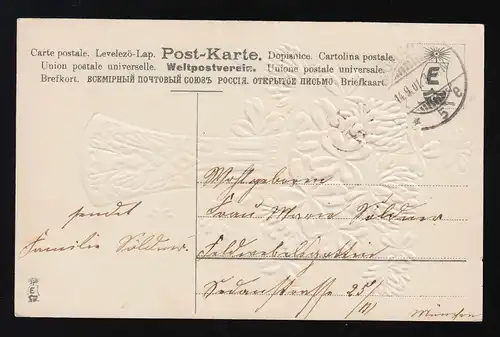 Carte postale. Levelező-Lap. Post-Karte. Dopisnice. Cartolina postale.
Union postale universelle. Weltpostverein. Unione postale universale.
Brefkort. ВСЕМІРНЫЙ ПОЧТОВЫЙ СОЮЗЪ РОССІЯ. ОТКРЫТОЕ ПИСЬМО Briefkaart.
E
14.9.07
5
Wohlgeboren
Frau Marie Söldner
Feldwebelsgattin
Sedanstrasse 25/
III
München
sendet
Familie Söldner.
E